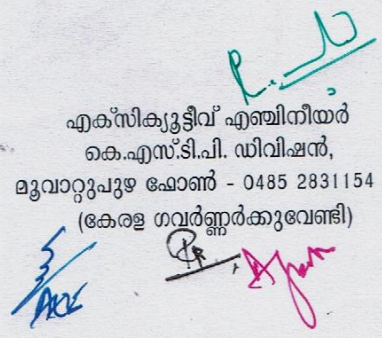 എക്സിക്യൂട്ടീവ് എഞ്ചിനീയർ
കെ.എസ്.ടി.പി. ഡിവിഷൻ,
മൂവാറ്റുപുഴ ഫോൺ - 0485 2831154
(കേരള ഗവർണ്ണർക്കുവേണ്ടി)